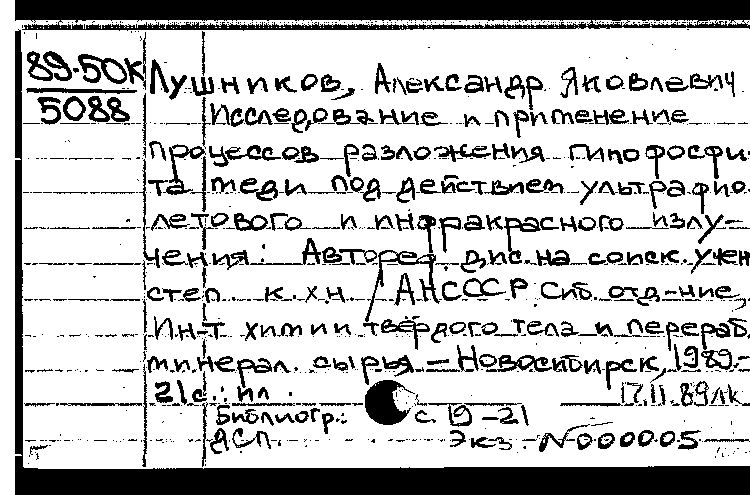 89-50К
5088
Лушников, Александр Яковлевич
Исследование и применение
процессов разложения гипофосфи-
та меди под действием ультрафио-
летового и инфракрасного излу-
чения: Автореф. дис. на соиск. учен
степ. к.х.н. / АНСССР. Сиб. отд-ние,
Ин-т химии твёрдого тела и перераб.
минерал. сырья. – Новосибирск, 1989.–
21с.: ил.
17.11.89лк
Библиогр.: с. 19-21
ДСП. Экз. №000005